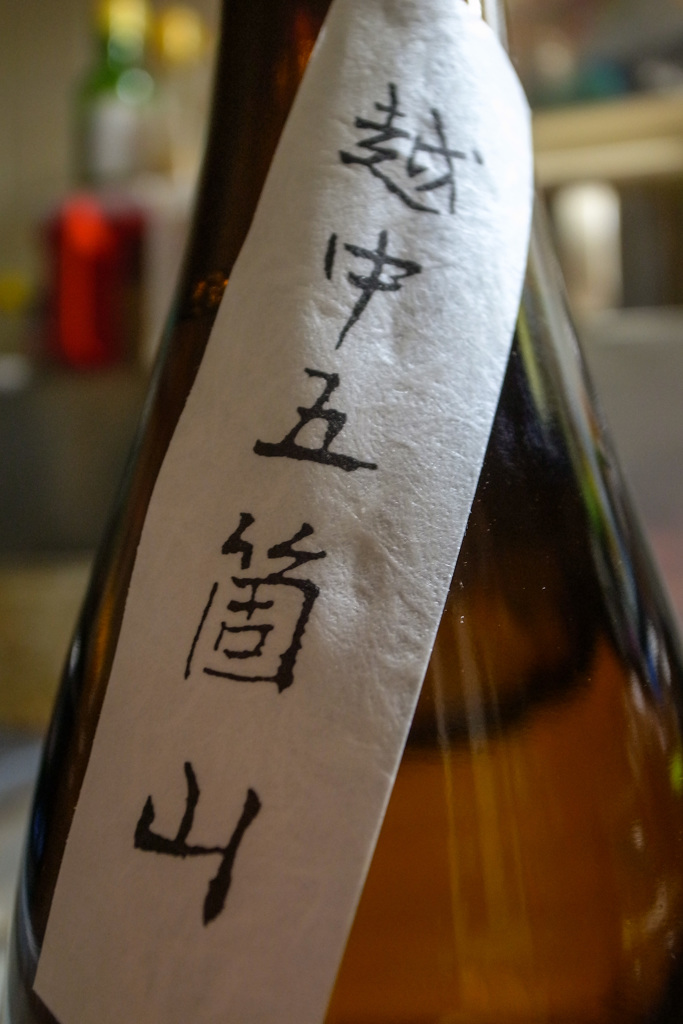 越中五箇山